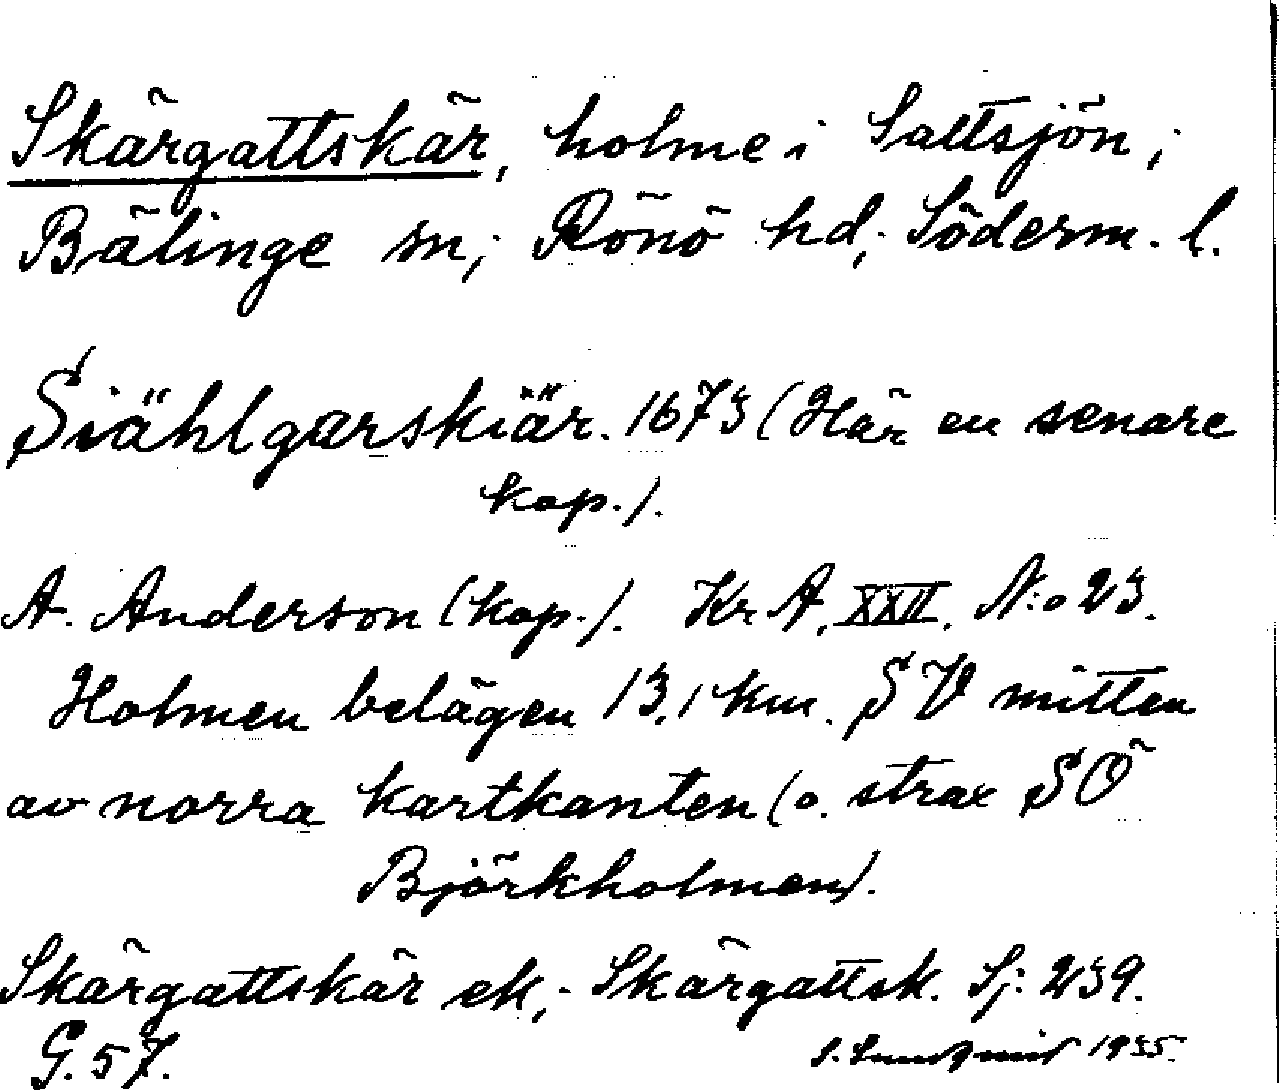 Skärgattskär, holme i Saltsjön;
Bälinge sn; Rönö hd; Söderm. l.
Siählgarskiär. 1673 (Här en senare
kop.).
A. Anderson (kop.). Kr A, XXII. N:o 23.
Holmen belägen 13,1 km. SV mitten
av norra kartkanten (o. strax SÖ
Björkholmen).
Skärgattskär ek; Skärgattsk. Sj: 239.
G. 57.
S. 1955.